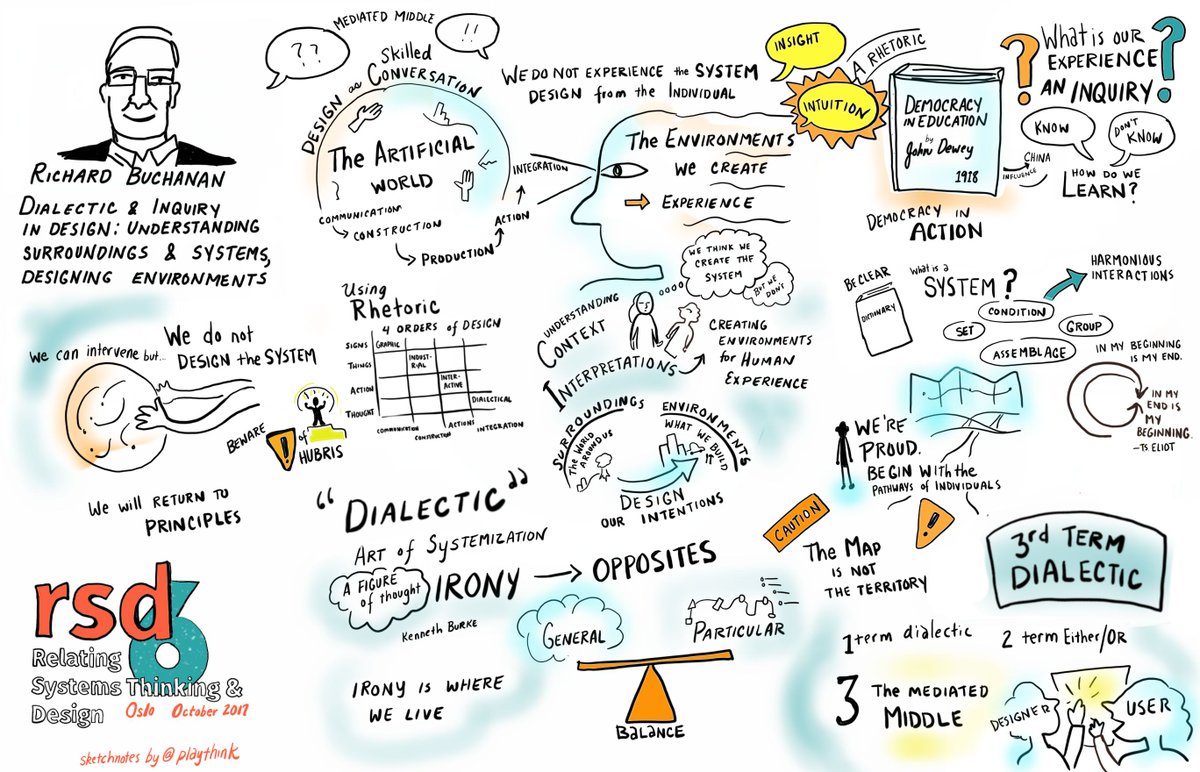 RICHARD BUCHANAN
DIALECTIC & INQUIRY
IN DESIGN: UNDERSTANDING
SURROUNDINGS & SYSTEMS,
DESIGNING ENVIRONMENTS
??
MEDIATED MIDDLE
!!
DESIGN as Skilled CONVERSATION
The ARTIFICIAL
WORLD
COMMUNICATION
CONSTRUCTION
PRODUCTION
ACTION
INTEGRATION
WE DO NOT EXPERIENCE the SYSTEM
DESIGN from the INDIVIDUAL
The ENVIRONMENTS
WE CREATE
EXPERIENCE
INSIGHT
INTUITION
A RHETORIC
DEMOCRACY
IN EDUCATION
by
John Dewey
1918
DEMOCRACY IN
ACTION
? What is our ?
EXPERIENCE
AN INQUIRY
KNOW
DON'T
KNOW
INFLUENCE
CHINA
HOW DO WE
LEARN?
We can intervene but...
We do not
DESIGN the SYSTEM
BEWARE
!
of
HUBRIS
We will RETURN TO
PRINCIPLES
Using
Rhetoric
4 ORDERS of DESIGN
SIGNS
GRAPHIC
THINGS
INDUST-
RIAL
ACTION
INTER-
ACTIVE
THOUGHT
DIALECTICAL
COMMUNICATION
CONSTRUCTION
ACTIONS
INTEGRATION
WE THINK WE
CREATE THE
SYSTEM
BUT WE
DON'T
UNDERSTANDING
CONTEXT
INTERPRETATIONS
CREATING
ENVIRONMENTS
for HUMAN
EXPERIENCE
SURROUNDINGS
THE WORLD
AROUND US
ENVIRONMENTS
WHAT WE BUILD
DESIGN
OUR INTENTIONS
BE CLEAR
DICTIONARY
What is a
SYSTEM?
HARMONIOUS
INTERACTIONS
CONDITION
SET
GROUP
ASSEMBLAGE
IN MY BEGINNING
IS MY END.
IN MY
END IS
MY
BEGINNING.
-TS. ELIOT
WE'RE
PROUD.
BEGIN WITH the
PATHWAYS OF INDIVIDUALS
!
CAUTION
The MAP
IS NOT
THE TERRITORY
"DIALECTIC"
ART of SYSTEMIZATION
A FIGURE
of thought
IRONY
OPPOSITES
Kenneth Burke
GENERAL
PARTICULAR
IRONY IS WHERE
WE LIVE
BALANCE
3rd TERM
DIALECTIC
1 term dialectic
2 term Either/OR
3 The MEDIATED
MIDDLE
DESIGNER
USER
rsd6
Relating
Systems Thinking &
Design
Oslo October 2017
sketchnotes by @playthink